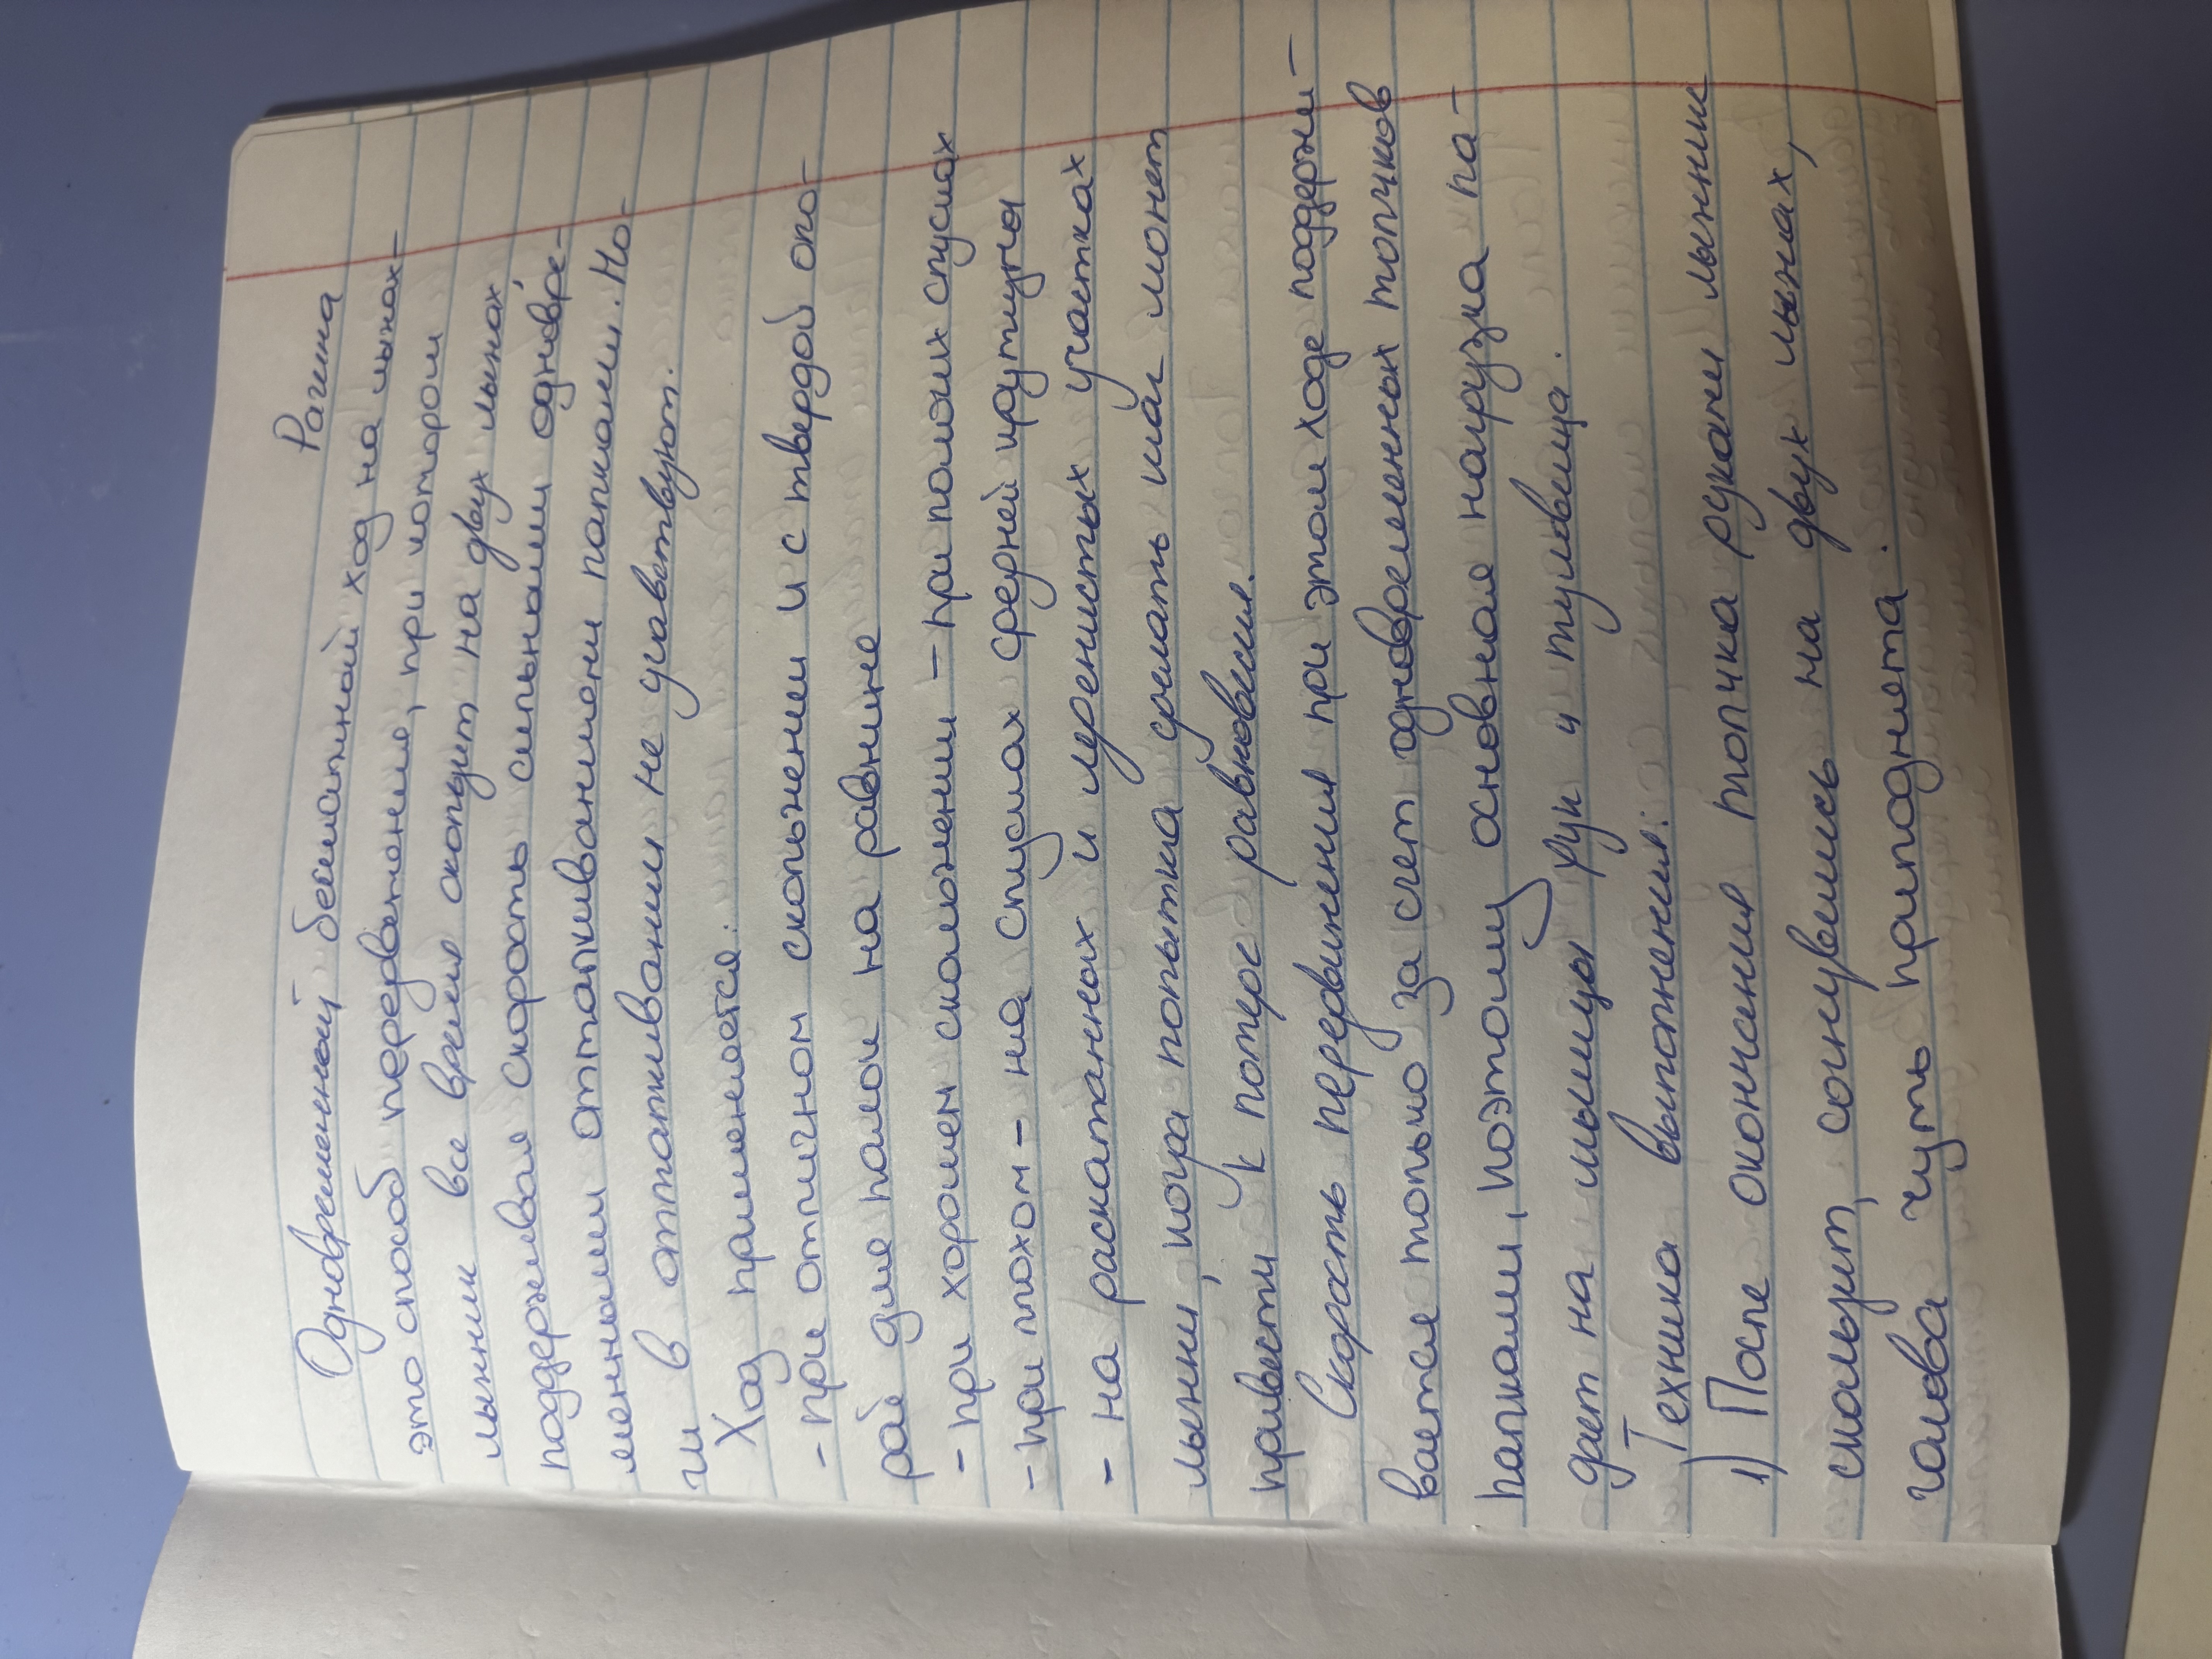 Рагина
Одновременный бесшажный ход на лыжах-
это способ передвижения, при котором
лыжник все время скользит на двух лыжах,
поддерживая скорость сильными одновре-
менными отталкиваниями палками. Но-
ги в отталкивании не участвуют.
Ход применяется:
- при отличном скольжении и с твердой опо-
рой для палок на равнине
- при хорошем скольжении - при пологих спусках
- при плохом - на спусках средней крутизны
- на раскатанных и леденистых участках
лыжни, когда попытка сделать шаг может
привести к потере равновесия.
Скорость передвижения при этом ходе поддержи-
вается только за счет одновременных толчков
палками, поэтому основная нагрузка па-
дает на мышцы рук и туловища.
Техника выполнения:
1) После окончания толчка руками лыжник
скользит, согнувшись на двух лыжах,
голова чуть приподнята.